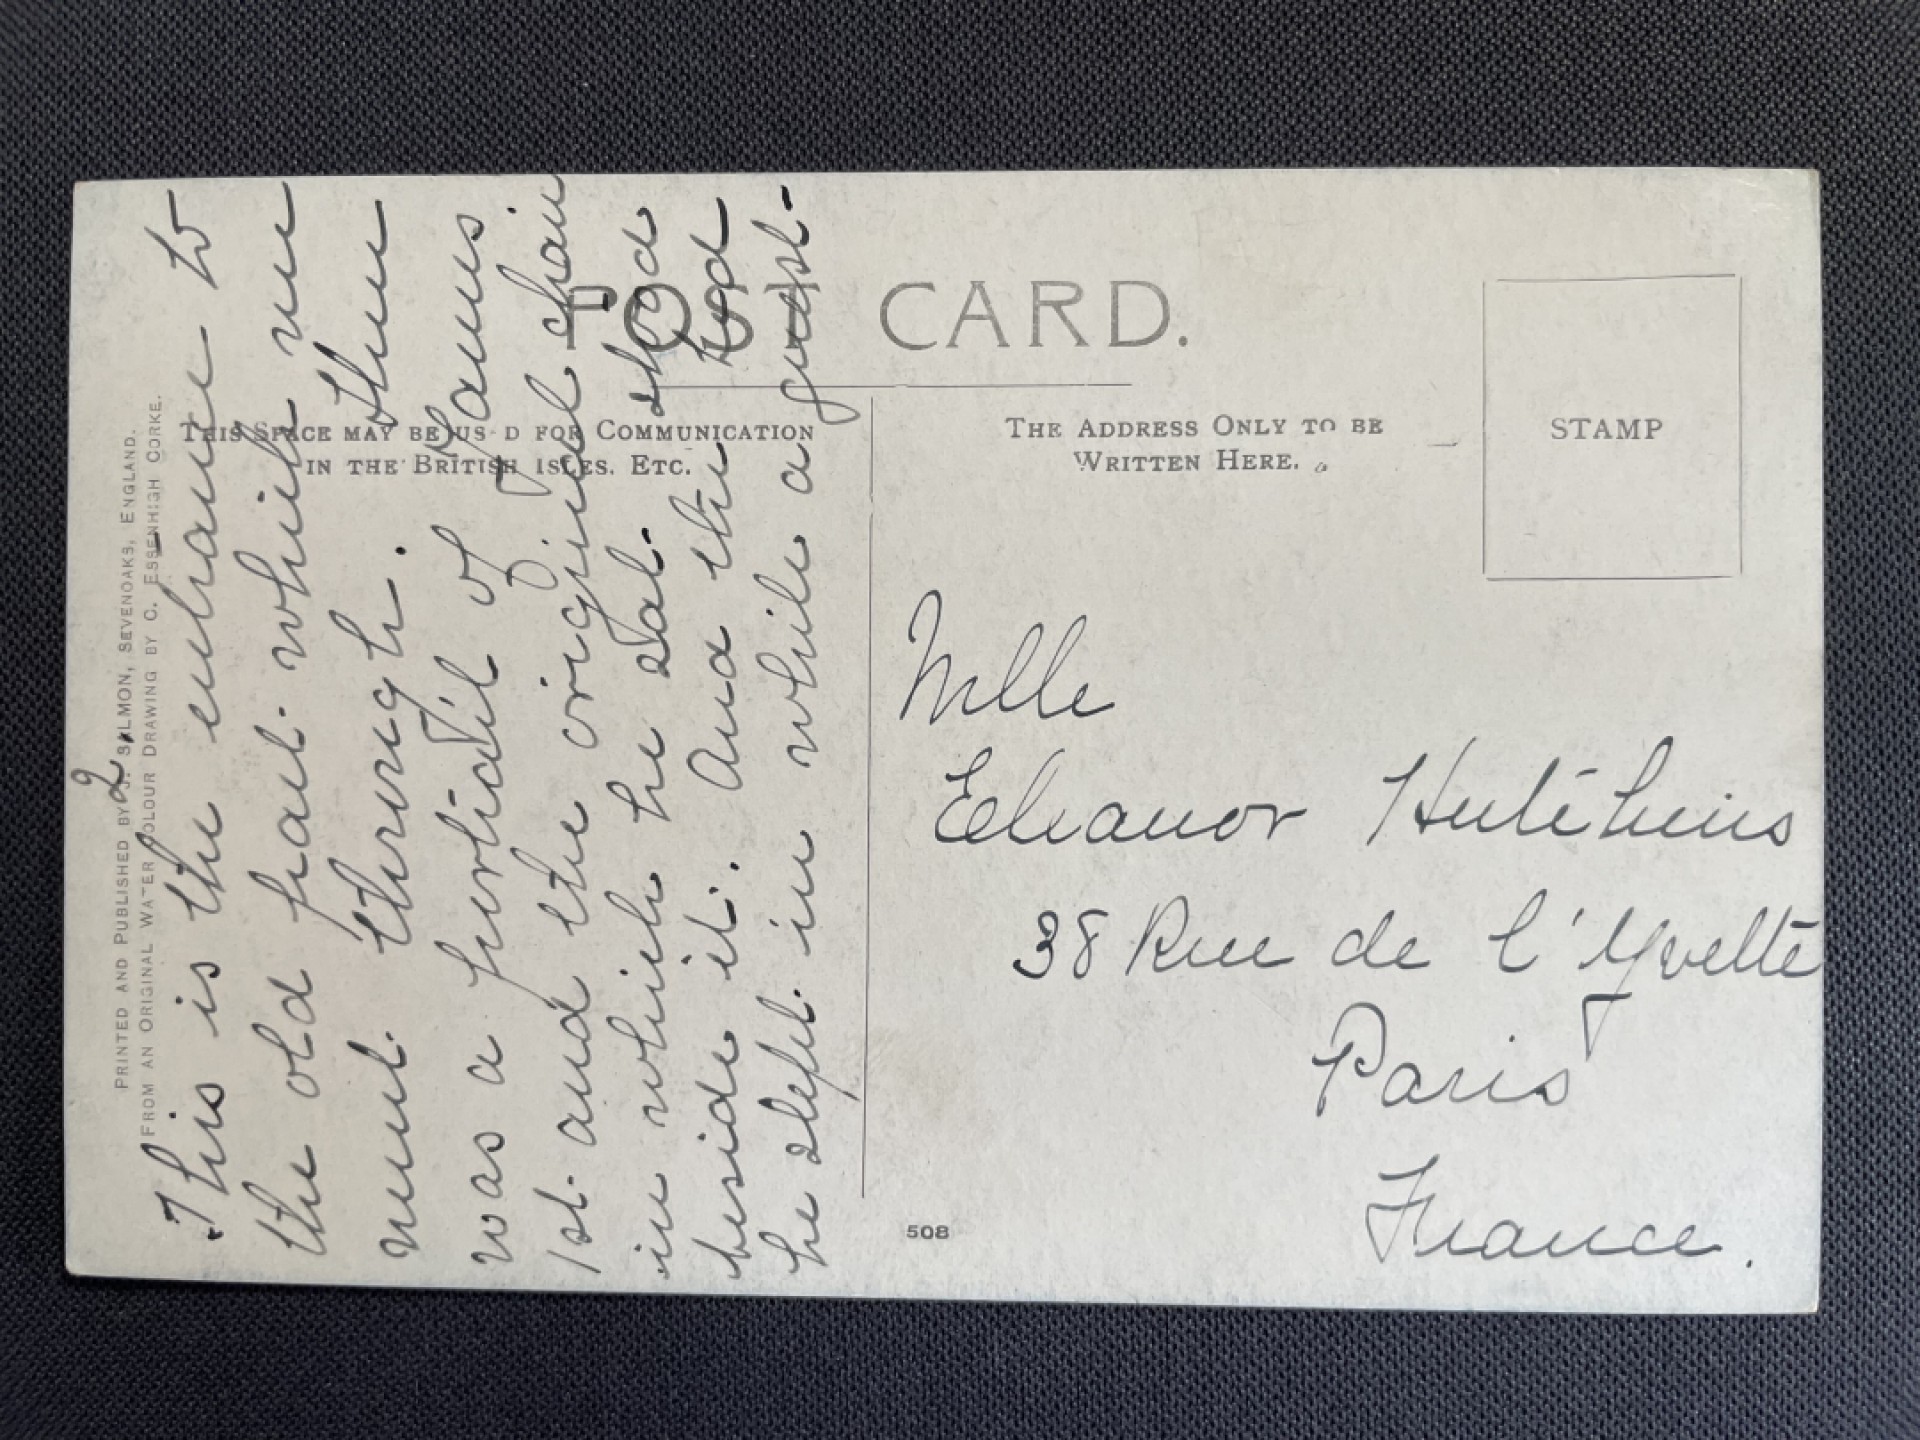 POST CARD.
THIS SPACE MAY BE US D FOR COMMUNICATION
IN THE BRITISH ISLES. ETC.
THE ADDRESS ONLY TO BE
WRITTEN HERE.
STAMP
PRINTED AND PUBLISHED BY J. SALMON, SEVENOAKS, ENGLAND.
FROM AN ORIGINAL WATER COLOUR DRAWING BY C. ESSENHIGH CORKE.
2
This is the entrance to
the old part which we
went through. There
was a portrait of James
1st and the original chair
in which he sat stood
beside it. And the bed
he slept in while a guest-
Mlle
Eleanor Hutchins
38 Rue de l'Yvette
Paris
France.
508